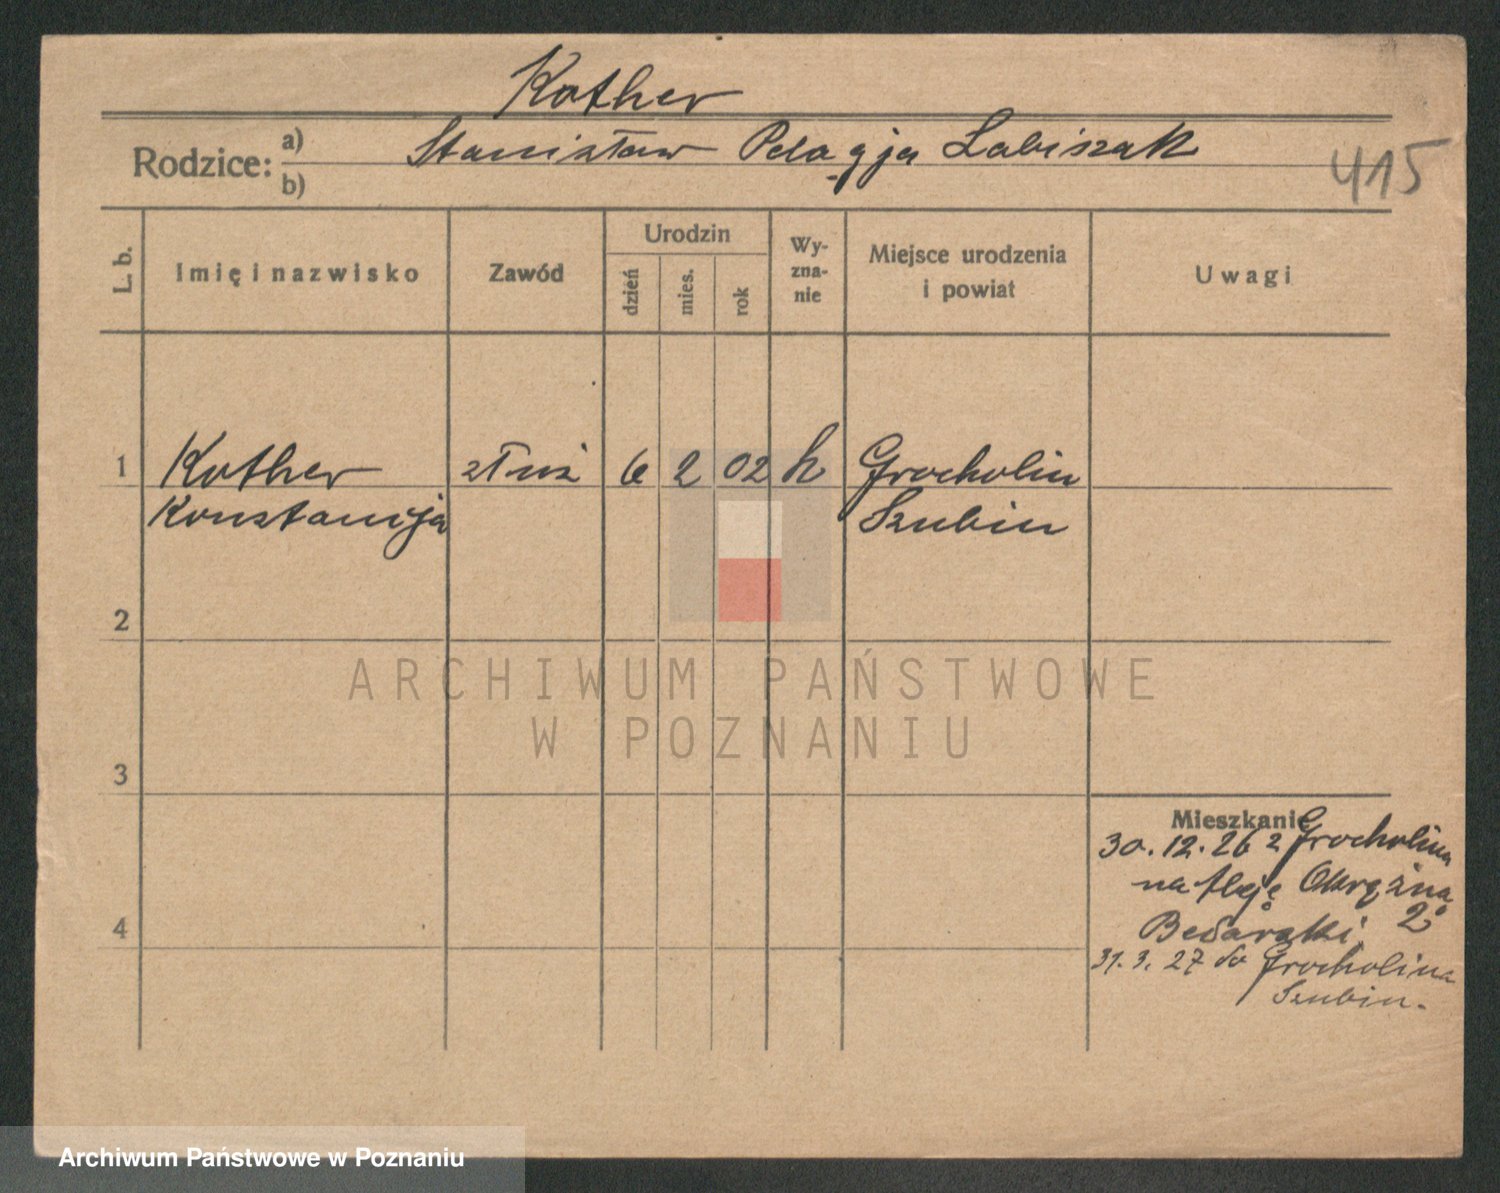 Kother
Rodzice: a) Stanisław Pelagja Labiszak
b)
415
L. b.
Imię i nazwisko
Zawód
Urodzin
dzień
mies.
rok
Wy-
zna-
nie
Miejsce urodzenia
i powiat
Uwagi
1 Kother 6 2 02 k Grocholin
Konstancja Szubin
2
3
4
Mieszkanie
30.12.26 z Grocholina
na
2
31.3.27 do Grocholina
Szubin.
ARCHIWUM PAŃSTWOWE
W POZNANIU
Archiwum Państwowe w Poznaniu